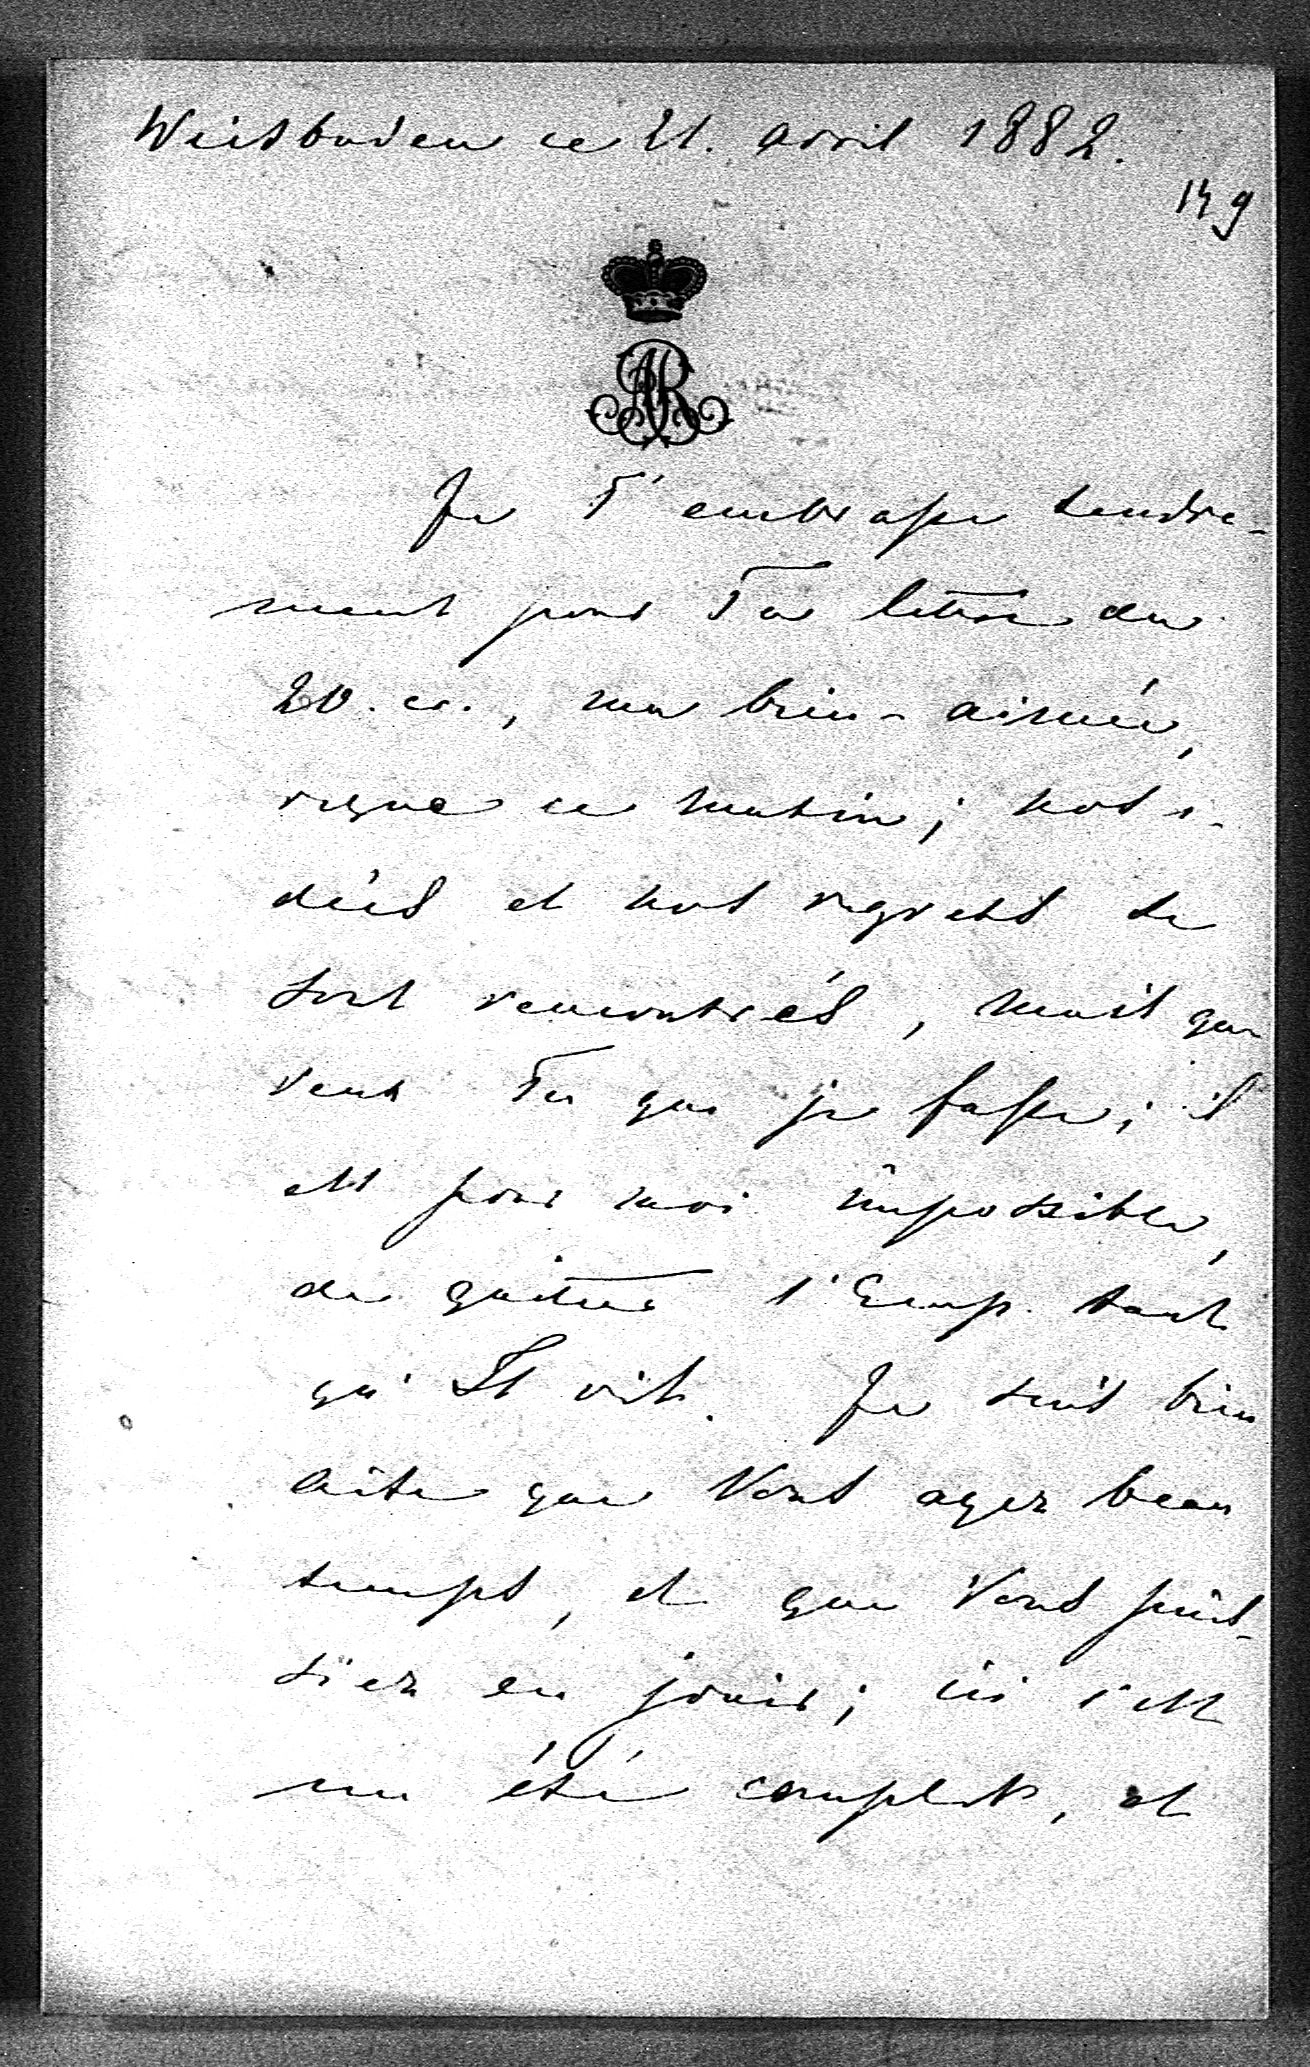 Wiesbaden ce 21. avril 1882.
149
AR
Je T'embrasse tendre-
ment pour Ta lettre du
20. cr., ma bien-aimée,
reçue ce matin; nos i-
dées et nos regrets se
sont rencontrés, mais que
veux Tu que je fasse; il
est pour moi impossible,
de quitter l'Emp. tant
qu'Il vit. Je suis bien
aise que Vous ayez beau
temps, et que Vous puis-
siez en jouir; ici c'est
un été complet, et